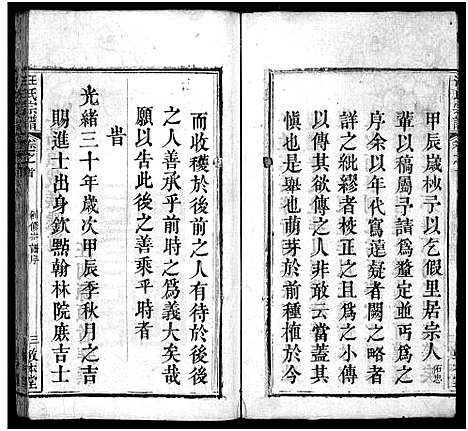 甲辰歲杪予以乞假里居宗人佑忠
輩以稿屬予請為釐定并丐為之
序余以年代寫遠疑者闕之略者
詳之紕繆者校正之且為之小傳
傳其欲傳之人非敢云愼其所當
愼也是舉也萌芽於前
而收穫於後前之人有待於後後
之人善承乎前時之為義大矣哉
願以告此後之善乘乎時者
旹
光緒三十年歲次甲辰季秋月之吉
賜進士出身欽點翰林院庶吉士
汪氏宗譜
卷之首
三
敦本堂